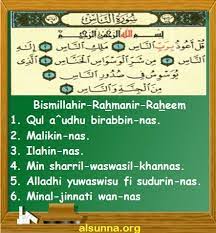 سُورَةُ النَّاسِ
بِسْمِ اللهِ الرَّحْمٰنِ الرَّحِيمِ
قُلْ أَعُوذُ بِرَبِّ النَّاسِ ١ مَلِكِ النَّاسِ ٢ إِلٰهِ
النَّاسِ ٣ مِنْ شَرِّ الْوَسْوَاسِ الْخَنَّاسِ ٤ الَّذِي
يُوَسْوِسُ فِي صُدُورِ النَّاسِ ٥ مِنَ الْجِنَّةِ وَالنَّاسِ ٦
Bismillahir-Rahmanir-Raheem
1. Qul a^udhu birabbin-nas.
2. Malikin-nas.
3. Ilahin-nas.
4. Min sharril-waswasil-khannas.
5. Alladhi yuwaswisu fi sudurin-nas.
6. Minal-jinnati wan-nas
alsunna.org